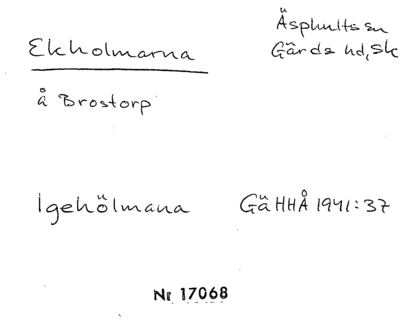 Ekholmarna
Äsphults sn
Gärds hd, Sk
å Brostorp
Igehölmana GäHHÅ 1941:37
Nr 17068